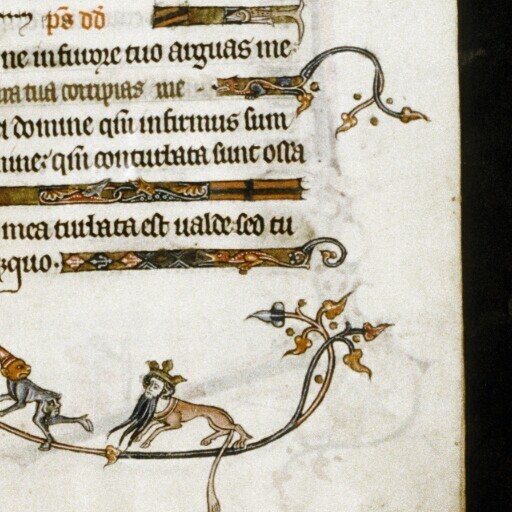 pſ dd
ne in furore tuo arguas me
ira tua corripias me
i domine qm infirmus sum
mine: qm conturbata sunt ossa
mea turbata est ualde: sed tu
squo.